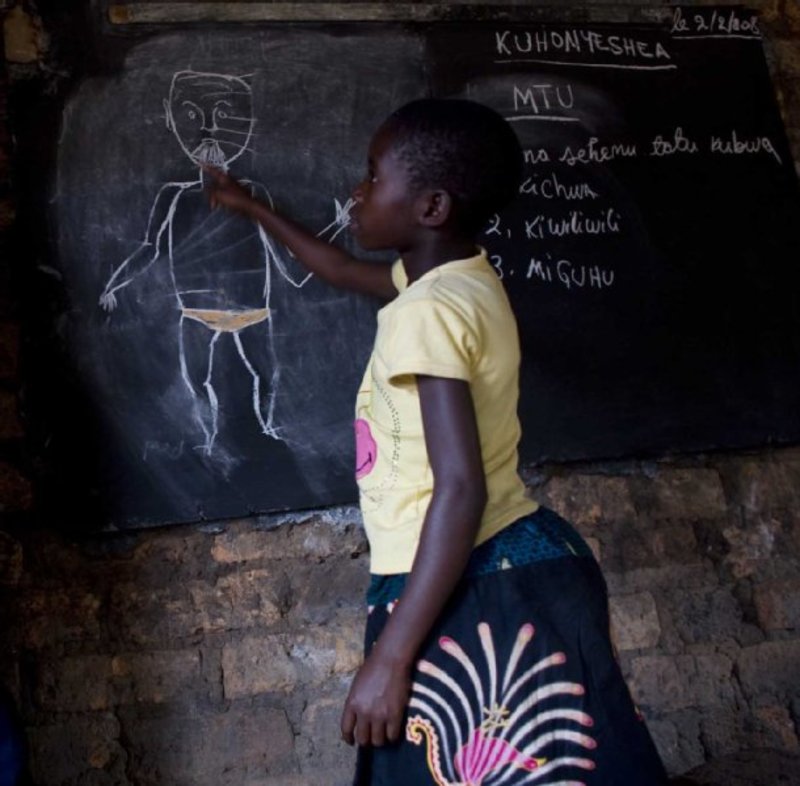 le 2/2/2018
KUHONYESHEA
MTU
na sehemu tatu kubwa
kichwa
2, Kiwiliwili
3. MIGUHU